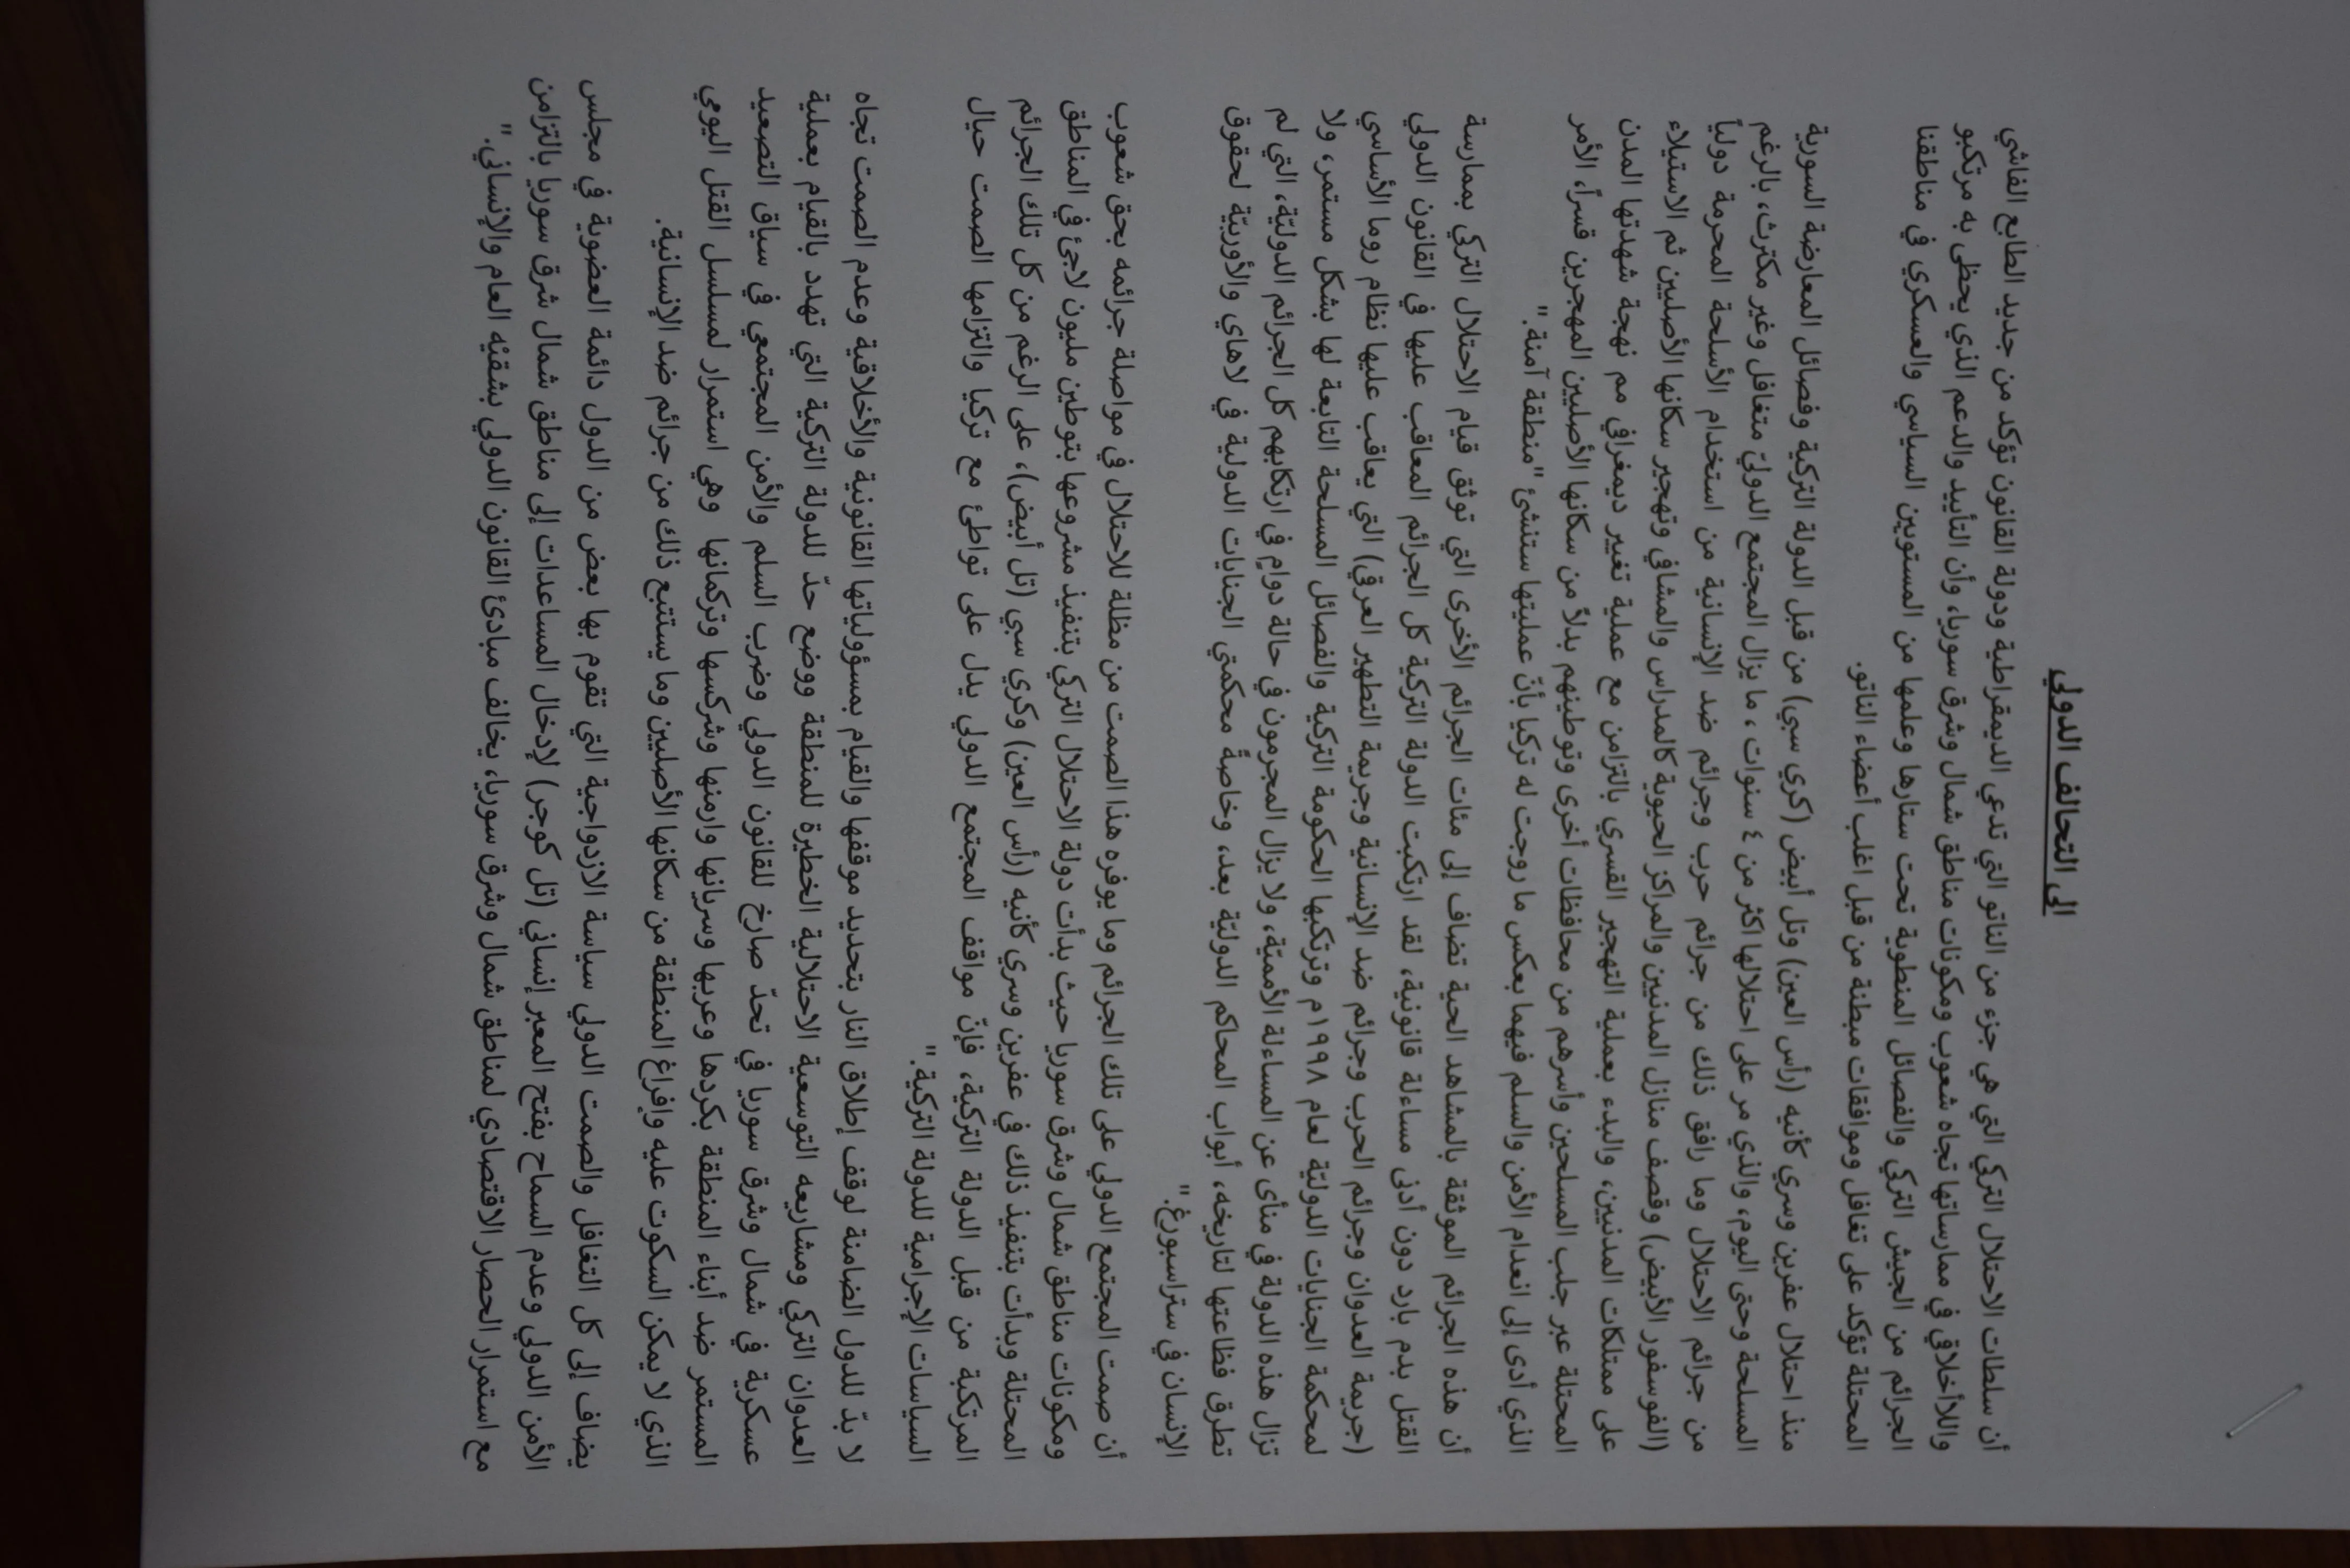 الى التحالف الدولي
أن سلطات الاحتلال التركي التي هي جزء من الناتو التي تدعي الديمقراطية ودولة القانون تؤكد من جديد الطابع الفاشي
واللاأخلاقي في ممارساتها تجاه شعوب ومكونات مناطق شمال وشرق سوريا، وأن التأييد والدعم الذي يحظى به مرتكبو
الجرائم من الجيش التركي والفصائل المنطوية تحت ستارها وعلمها من المستويين السياسي والعسكري في مناطقنا
المحتلة تؤكد على تغافل وموافقات مبطنة من قبل اغلب أعضاء الناتو.
منذ احتلال عفرين وسري كأنيه (رأس العين) وتل أبيض (كري سبي) من قبل الدولة التركية وفصائل المعارضة السورية
المسلحة وحتى اليوم، والذي مر على احتلالها اكثر من ٤ سنوات ، ما يزال المجتمع الدوليّ متغافل وغير مكترث، بالرغم
من جرائم الاحتلال وما رافق ذلك من جرائم حرب وجرائم ضد الإنسانية من استخدام الأسلحة المحرمة دولياً
(الفوسفور الأبيض) وقصف منازل المدنيين والمراكز الحيوية كالمدراس والمشافي وتهجير سكانها الأصليين ثم الاستيلاء
على ممتلكات المدنيين، والبدء بعملية التهجير القسري بالتزامن مع عملية تغيير ديمغرافي مم نهجة شهدتها المدن
المحتلة عبر جلب المسلحين وأسرهم من محافظات أخرى وتوطينهم بدلاً من سكانها الأصليين المهجرين قسراً، الأمر
الذي أدى إلى انعدام الأمن والسلم فيهما بعكس ما روجت له تركيا بأنّ عمليتها ستنشئ "منطقة آمنة."
أن هذه الجرائم الموثقة بالمشاهد الحية تضاف إلى مئات الجرائم الأخرى التي توثق قيام الاحتلال التركي بممارسة
القتل بدم بارد دون أدنى مساءلة قانونية، لقد ارتكبت الدولة التركية كل الجرائم المعاقب عليها في القانون الدولي
(جريمة العدوان وجرائم الحرب وجرائم ضد الإنسانية وجريمة التطهير العرقي) التي يعاقب عليها نظام روما الأساسي
لمحكمة الجنايات الدوليّة لعام ١٩٩٨م وترتكبها الحكومة التركية والفصائل المسلحة التابعة لها بشكل مستمر، ولا
تزال هذه الدولة في منأى عن المساءلة الأمميّة، ولا يزال المجرمون في حالة دوامٍ في ارتكابهم كل الجرائم الدوليّة، التي لم
تطرق فظاعتها لتاريخه، أبواب المحاكم الدوليّة بعد، وخاصةً محكمتي الجنايات الدولية في لاهاي والأوربيّة لحقوق
الإنسان في ستراسبورغ."
أن صمت المجتمع الدولي على تلك الجرائم وما يوفره هذا الصمت من مظلة للاحتلال في مواصلة جرائمه بحق شعوب
ومكونات مناطق شمال وشرق سوريا حيث بدأت دولة الاحتلال التركي بتنفيذ مشروعها بتوطين مليون لاجئ في المناطق
المحتلة وبدأت بتنفيذ ذلك في عفرين وسري كأنيه (رأس العين) وكري سبي (تل أبيض)، على الرغم من كل تلك الجرائم
المرتكبة من قبل الدولة التركية، فإنّ مواقف المجتمع الدولي يدل على تواطئ مع تركيا والتزامها الصمت حيال
السياسات الإجرامية للدولة التركية."
لا بدّ للدول الضامنة لوقف إطلاق النار بتحديد موقفها والقيام بمسؤولياتها القانونية والأخلاقية وعدم الصمت تجاه
العدوان التركي ومشاريعه التوسعية الاحتلالية الخطيرة للمنطقة ووضع حدّ للدولة التركية التي تهدد بالقيام بعملية
عسكرية في شمال وشرق سوريا في تحدّ صارخ للقانون الدولي وضرب السلم والأمن المجتمعي في سياق التصعيد
المستمر ضد أبناء المنطقة بكردها وعربها وسريانها وارمنها وشركسها وتركمانها وهي استمرار لمسلسل القتل اليومي
الذي لا يمكن السكوت عليه وإفراغ المنطقة من سكانها الأصليين وما يستتبع ذلك من جرائم ضد الإنسانية.
يضاف إلى كل التغافل والصمت الدولي سياسة الازدواجية التي تقوم بها بعض من الدول دائمة العضوية في مجلس
الأمن الدولي وعدم السماح بفتح المعبر إنساني (تل كوجر) لإدخال المساعدات إلى مناطق شمال شرق سوريا بالتزامن
مع استمرار الحصار الاقتصادي لمناطق شمال وشرق سوريا، يخالف مبادئ القانون الدولي بشقيْه العام والإنساني."